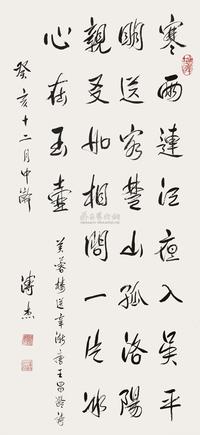 寒雨連江夜入吳平
明送客楚山孤洛陽
親友如相問一片冰
心在玉壺
芙蓉樓送辛漸唐王昌齡詩
癸亥十二月中澣
溥杰